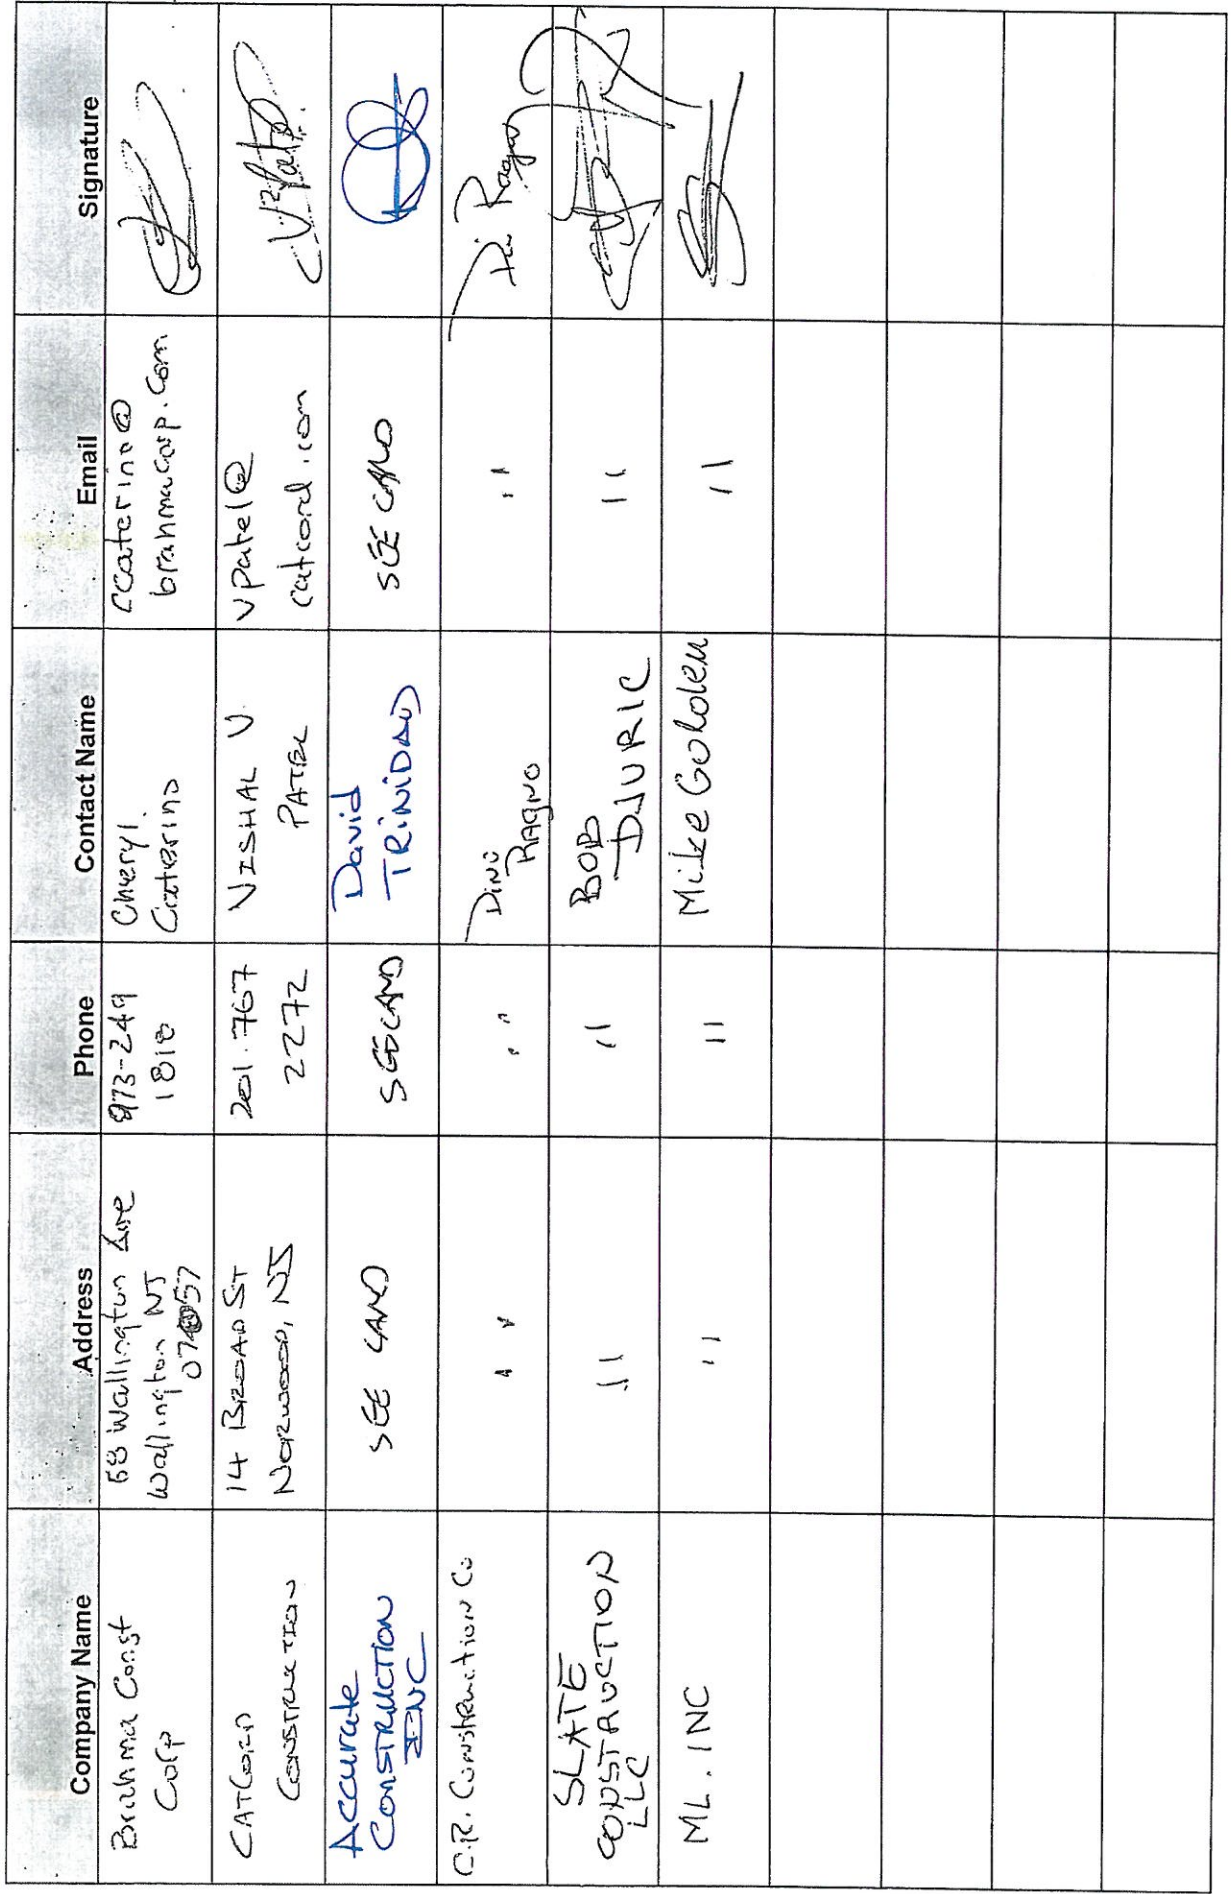 Company Name
Address
Phone
Contact Name
Email
Signature
Brahma Const
Corp
68 Wallington Ave
Wallington NJ
07057
973-249
1810
Cheryl
Caterino
ccaterino@
brahmacorp.com
CATCORD
CONSTRUCTION
14 BROAD ST
NORWOOD, NJ
201.767
2272
VISHAL V.
PATEL
vpatel@
catcord.com
Accurate
CONSTRUCTION
INC
SEE CARD
SEE CARD
David
TRINIDAD
SEE CARD
C.R. Construction Co
"
"
Dino
Ragno
"
SLATE
CONSTRUCTION
LLC
"
"
BOB
DJURIC
"
ML. INC
"
"
Mike Golden
"